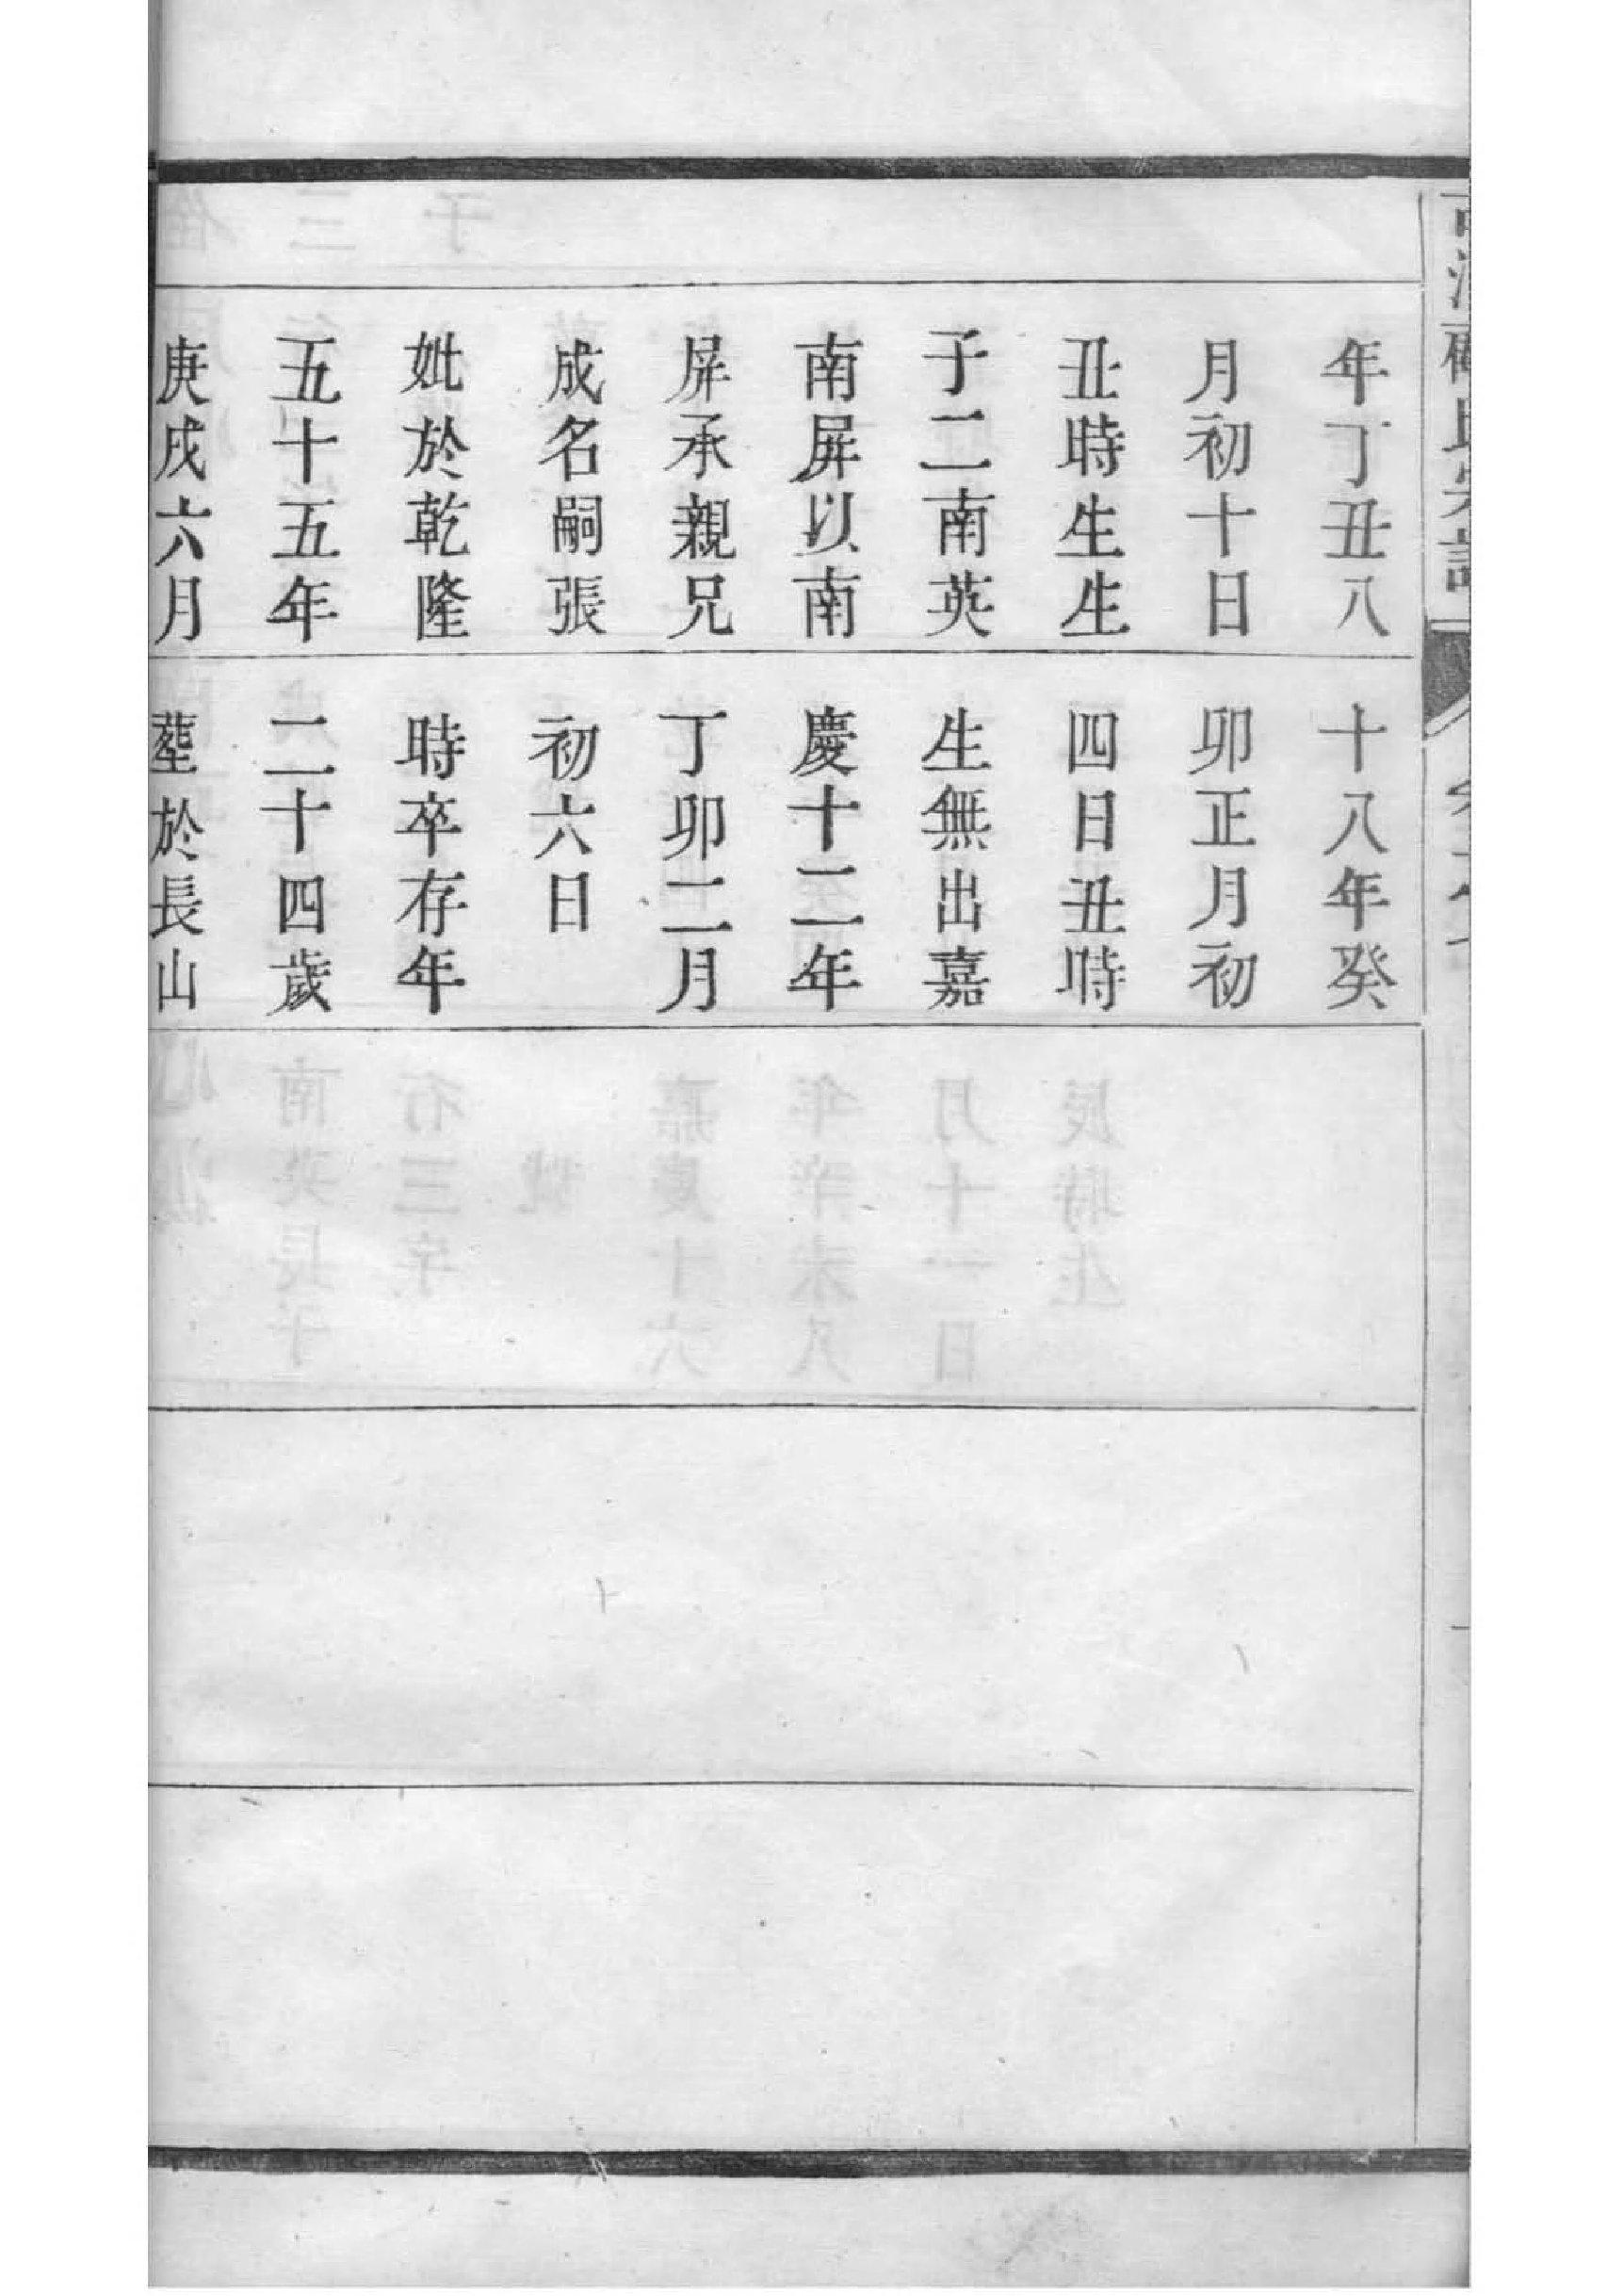 年丁丑八
月初十日
丑時生生
子二南英
南屏以南
屏承親兄
成名嗣張
妣於乾隆
五十五年
庚戌六月
十八年癸
卯正月初
四日丑時
生無出嘉
慶十二年
丁卯二月
初六日
時卒存年
二十四歲
塟於長山